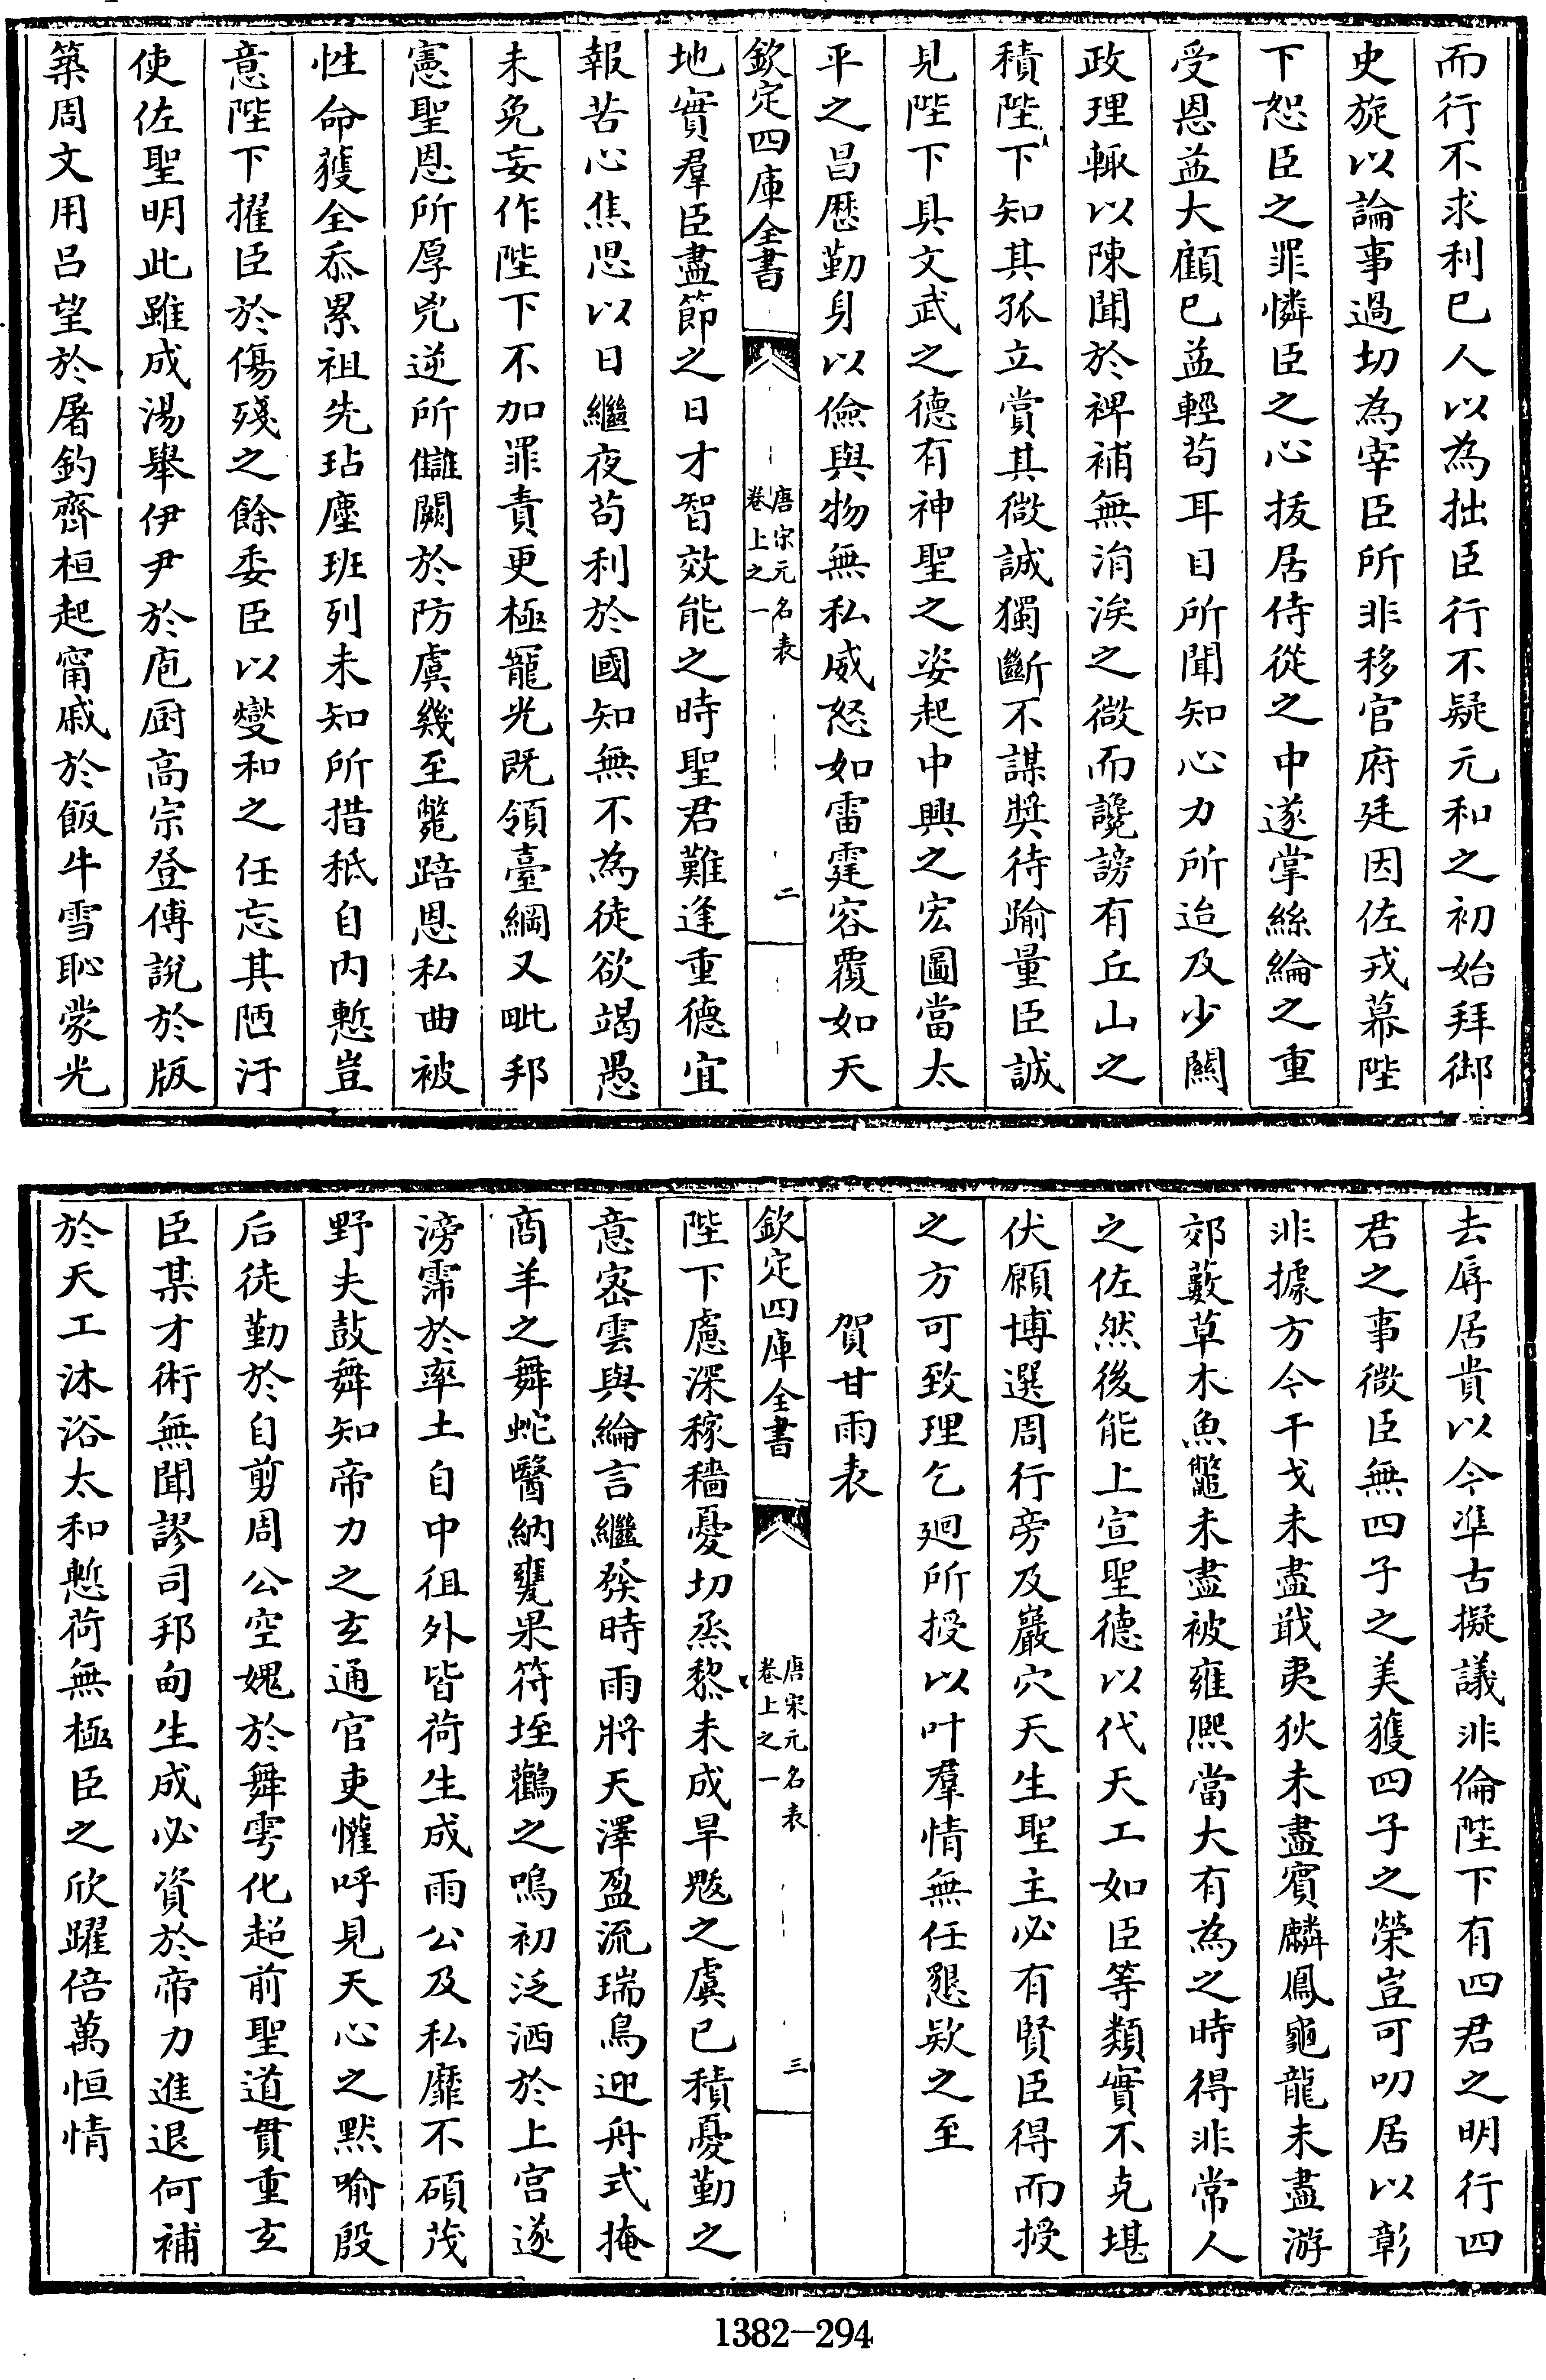 而行不求利已人以為拙臣行不疑元和之初始拜御
史旋以論事過切為宰臣所非移官府廷因佐戎幕陛
下恕臣之罪憐臣之心拔居侍從之中遂掌絲綸之重
受恩益大顧已益輕苟耳目所聞知心力所迨及少關
政理輙以陳聞於裨補無涓涘之微而讒謗有丘山之
積陛下知其孤立賞其微誠獨斷不謀奬待踰量臣誠
見陛下具文武之德有神聖之姿起中興之宏圖當太
平之昌歴勤身以儉與物無私威怒如雷霆容覆如天
欽定四庫全書
唐宋元名表
卷上之一
二
地實羣臣盡節之日才智效能之時聖君難逢重德宜
報苦心焦思以日繼夜苟利於國知無不為徒欲竭愚
未免妄作陛下不加罪責更極寵光既領臺綱又毗邦
憲聖恩所厚兇逆所讎闕於防虞幾至斃踣恩私曲被
性命獲全忝累祖先玷塵班列未知所措秪自内慙豈
意陛下擢臣於傷殘之餘委臣以燮和之任忘其陋汙
使佐聖明此雖成湯舉伊尹於庖厨高宗登傅說於版
築周文用呂望於屠釣齊桓起甯戚於飯牛雪恥蒙光
去辱居貴以今凖古擬議非倫陛下有四君之明行四
君之事微臣無四子之美獲四子之榮豈可叨居以彰
非據方今干戈未盡戢夷狄未盡賓麟鳳龜龍未盡游
郊藪草木魚鼈未盡被雍熙當大有為之時得非常人
之佐然後能上宣聖德以代天工如臣等類實不克堪
伏願博選周行旁及巖穴天生聖主必有賢臣得而授
之方可致理乞廻所授以叶羣情無任懇欵之至
賀甘雨表
欽定四庫全書
唐宋元名表
卷上之一
三
陛下慮深稼穡憂切烝黎未成旱魃之虞已積憂勤之
意宻雲與綸言繼發時雨將天澤盈流瑞鳥迎舟式掩
商羊之舞蛇醫納甕果符垤鸛之鳴初泛洒於上宫遂
滂霈於率土自中徂外皆荷生成雨公及私靡不碩茂
野夫鼓舞知帝力之玄通官吏懽呼見天心之黙喻殷
后徒勤於自剪周公空媿於舞雩化超前聖道貫重玄
臣某才術無聞謬司邦甸生成必資於帝力進退何補
於天工沐浴太和慙荷無極臣之欣躍倍萬恒情
1382—294